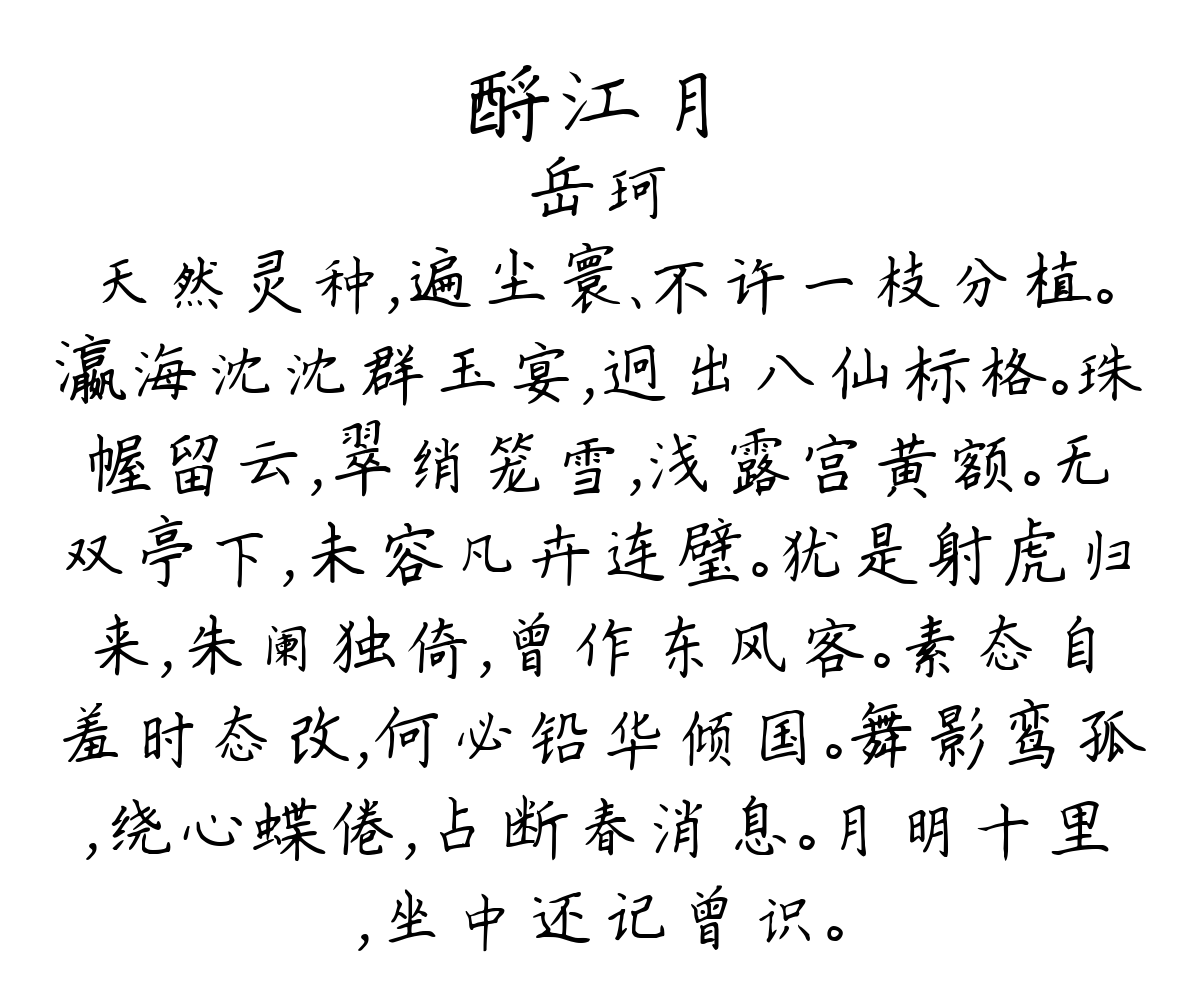 酹江月
岳珂
天然灵种,遍尘寰、不许一枝分植。
瀛海沈沈群玉宴,迥出八仙标格。珠
幄留云,翠绡笼雪,浅露宫黄额。无
双亭下,未容凡卉连璧。犹是射虎归
来,朱阑独倚,曾作东风客。素态自
羞时态改,何必铅华倾国。舞影鸾孤
,绕心蝶倦,占断春消息。月明十里
,坐中还记曾识。